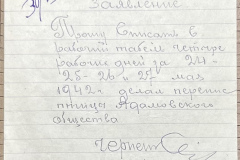 Заявление
Прошу Списать в
рабочий табель четыре
рабочие дней за 24-
25-26 и 27 мая
1942г. делал перепис
пчелы Адамовского
общества
Чернет